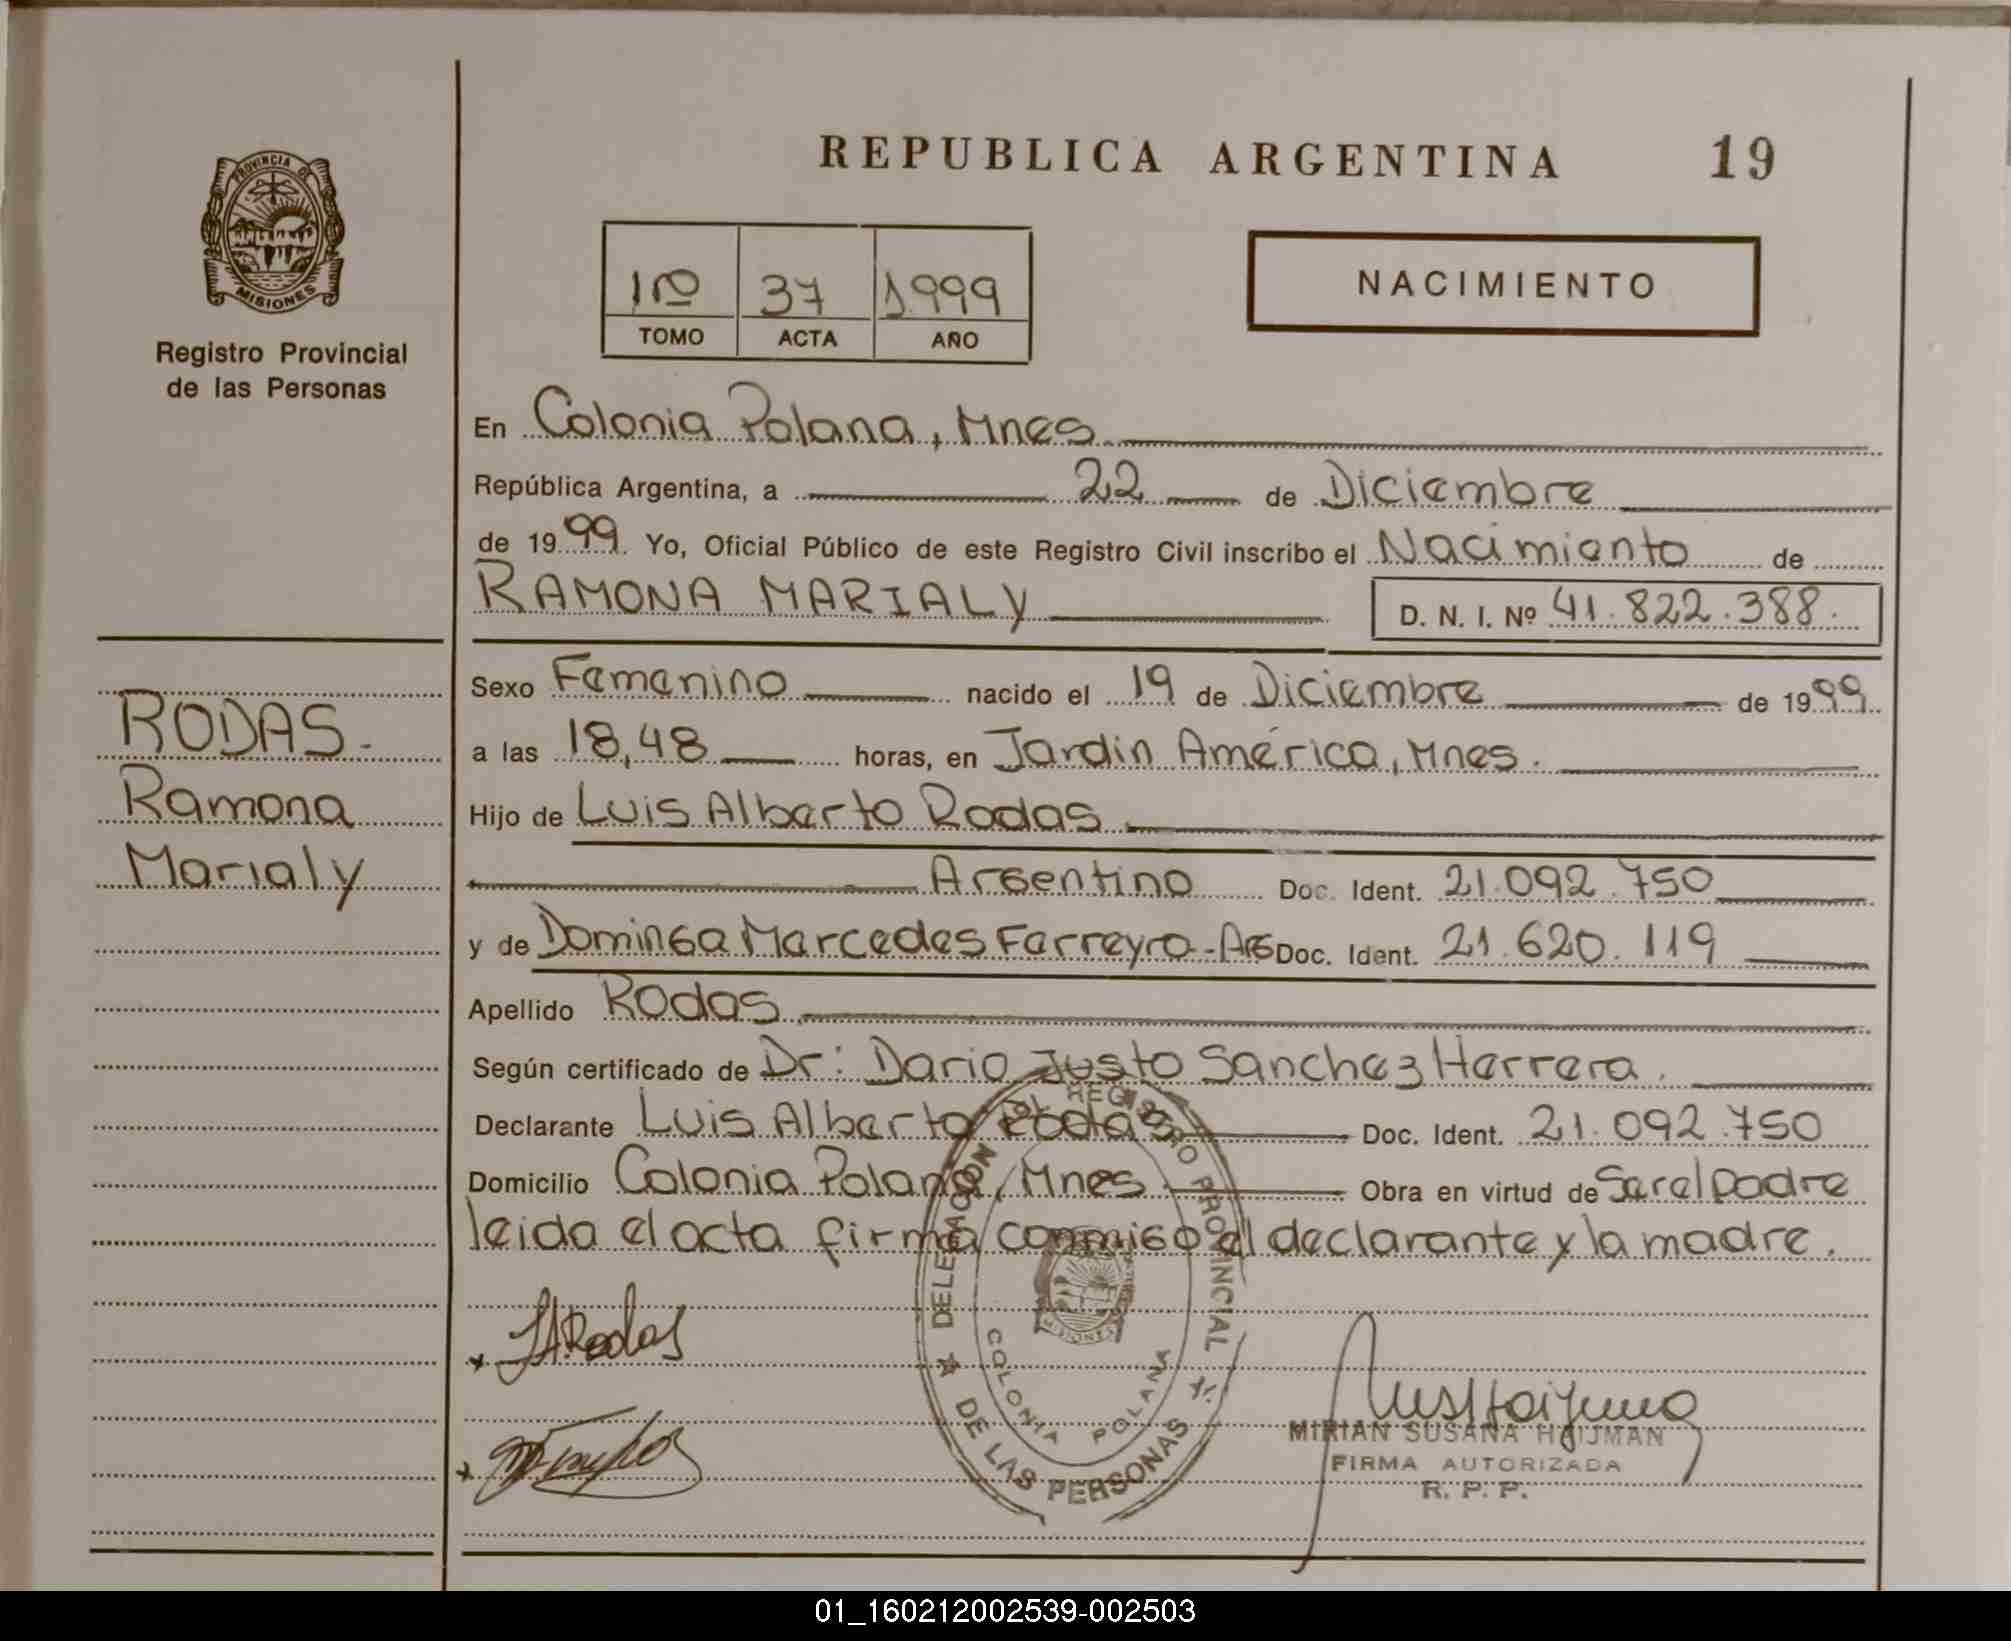 REPUBLICA ARGENTINA 19
PROVINCIA DE
MISIONES
Registro Provincial
de las Personas
1ro 37 1.999
TOMO ACTA AÑO
NACIMIENTO
En Colonia Polana, Mnes
República Argentina, a 22 de Diciembre
de 1999. Yo, Oficial Público de este Registro Civil inscribo el Nacimiento de
RAMONA MARIALY
D. N. I. Nº 41.822.388.
Sexo Femenino nacido el 19 de Diciembre de 1999
a las 18,48 horas, en Jardin América, Mnes.
Hijo de Luis Alberto Rodas
Argentino Doc. Ident. 21.092.750
y de Dominga Mercedes Ferreyro - Arg Doc. Ident. 21.620.119
Apellido Rodas
Según certificado de Dr: Dario Justo Sanchez Herrera.
Declarante Luis Alberto Rodas Doc. Ident. 21.092.750
Domicilio Colonia Polana, Mnes Obra en virtud de Ser el padre
leida el acta firma conmigo el declarante y la madre.
RODAS.
Ramona
Marialy
LARodas
DELEGACION DEL REGISTRO PROVINCIAL
DE LAS PERSONAS
COLONIA POLANA
MISIONES
MIRIAN SUSANA HAIJMAN
FIRMA AUTORIZADA
R. P. P.
01_160212002539-002503